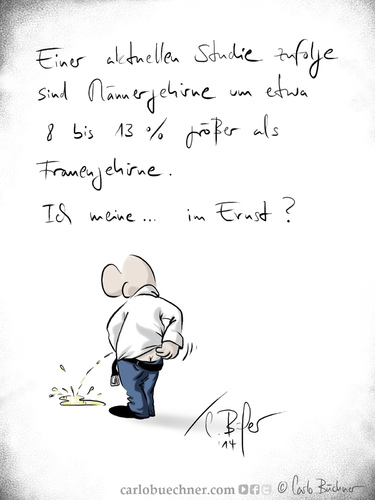 Einer aktuellen Studie zufolge
sind Männergehirne um etwa
8 bis 13% größer als
Frauengehirne.
Ich meine... im Ernst?
'14
carlobuechner.com
© Carlo Büchner